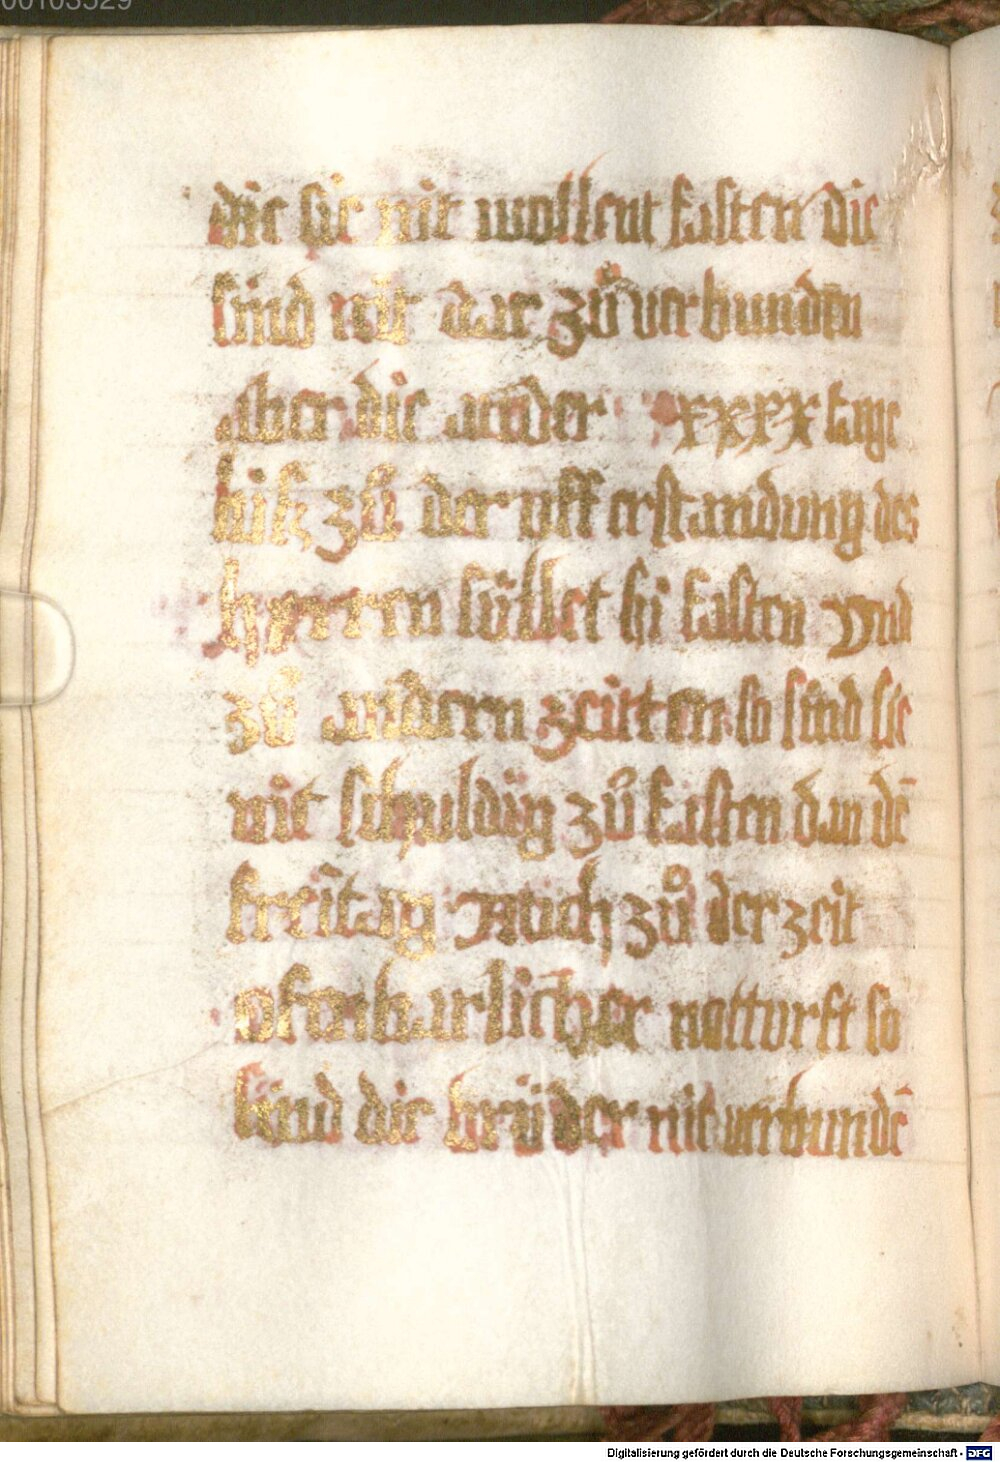 00103529
die sie nit wollent fasten die
sind nit dar zů verbunden
aber die ander xxxx tage
bis zů der uff erstandung des
herren süllet si fasten vnd
zů andern zeitten so sind sie
nit schuldig zů fasten dan dē
freitag Auch zů der zeit
ofenbarlicher notturft so
sind die brüder nit verbundē
Digitalisierung gefördert durch die Deutsche Forschungsgemeinschaft - DFG